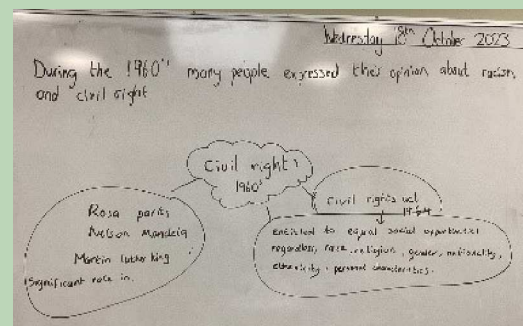 Wednesday 18th October 2023
During the 1960's many people expressed their opinion about racism,
and civil right
Civil rights
1960's
Rosa parks
Nelson Mandela
Martin luther king
Significant role in.
Civil rights act
1964
entitled to equal social opportunities
regardless, race, religion, gender, nationality,
ethnicity, personal characteristics.